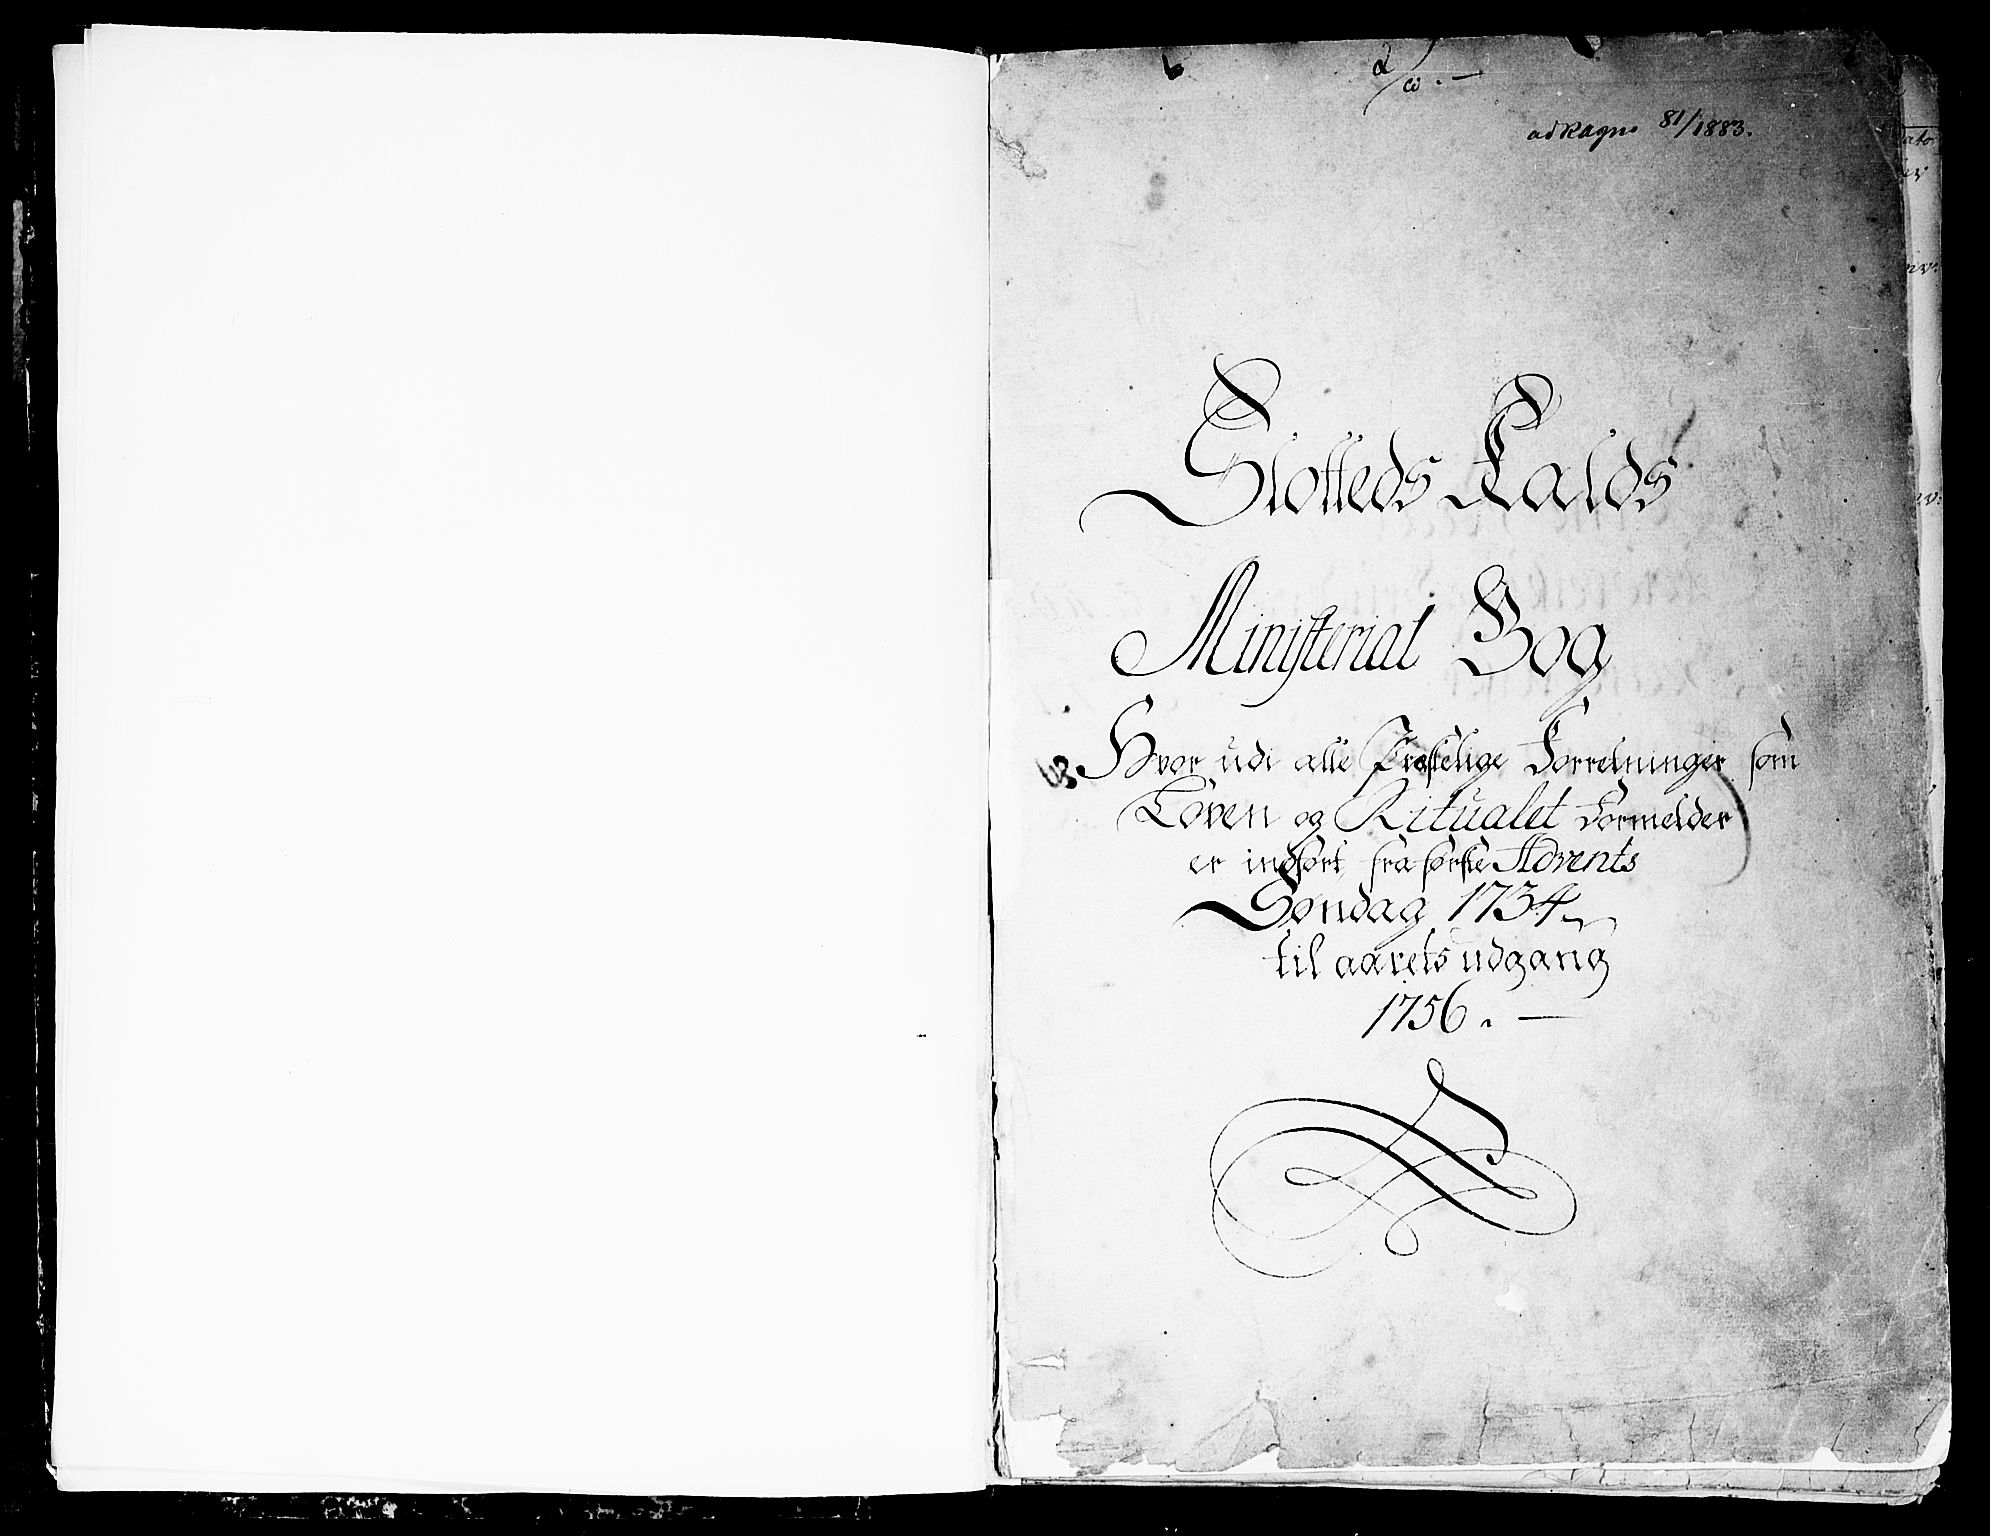 81/1883.
Slotteds Kalds
Ministerial Bog
Hvor udi alle Præstelige Forretninger som
Loven og Ritualet Formelder
er indført fra første Advents
Søndag 1734
til aarets udgang
1756. —